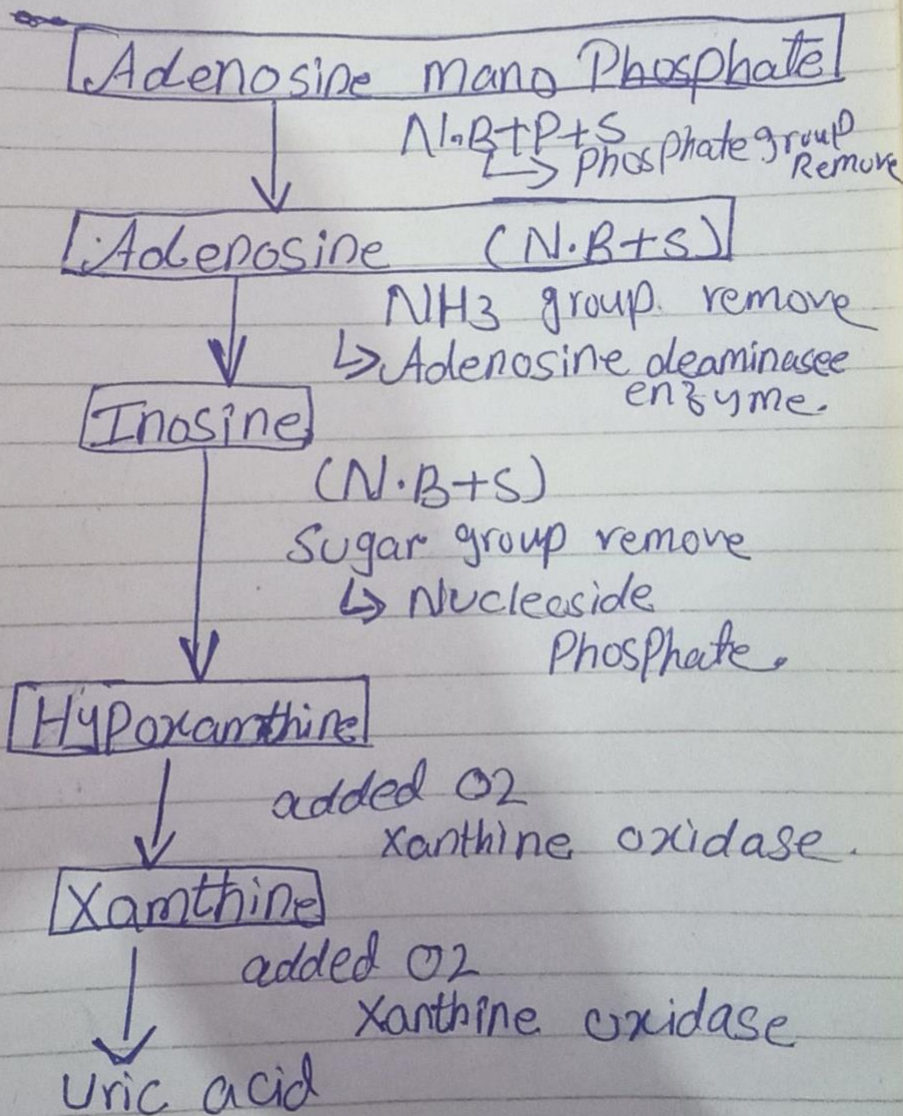 Adenosine mano Phosphate
N.B+P+S
↳ Phosphate group
Remove
Adenosine (N.B+S)
NH3 group remove
↳ Adenosine deaminasee
enzyme.
Inosine
(N.B+S)
Sugar group remove
↳ Nucleoside
Phosphate.
Hypoxamthine
added O2
Xanthine oxidase.
Xamthine
added O2
Xanthine oxidase
Uric acid